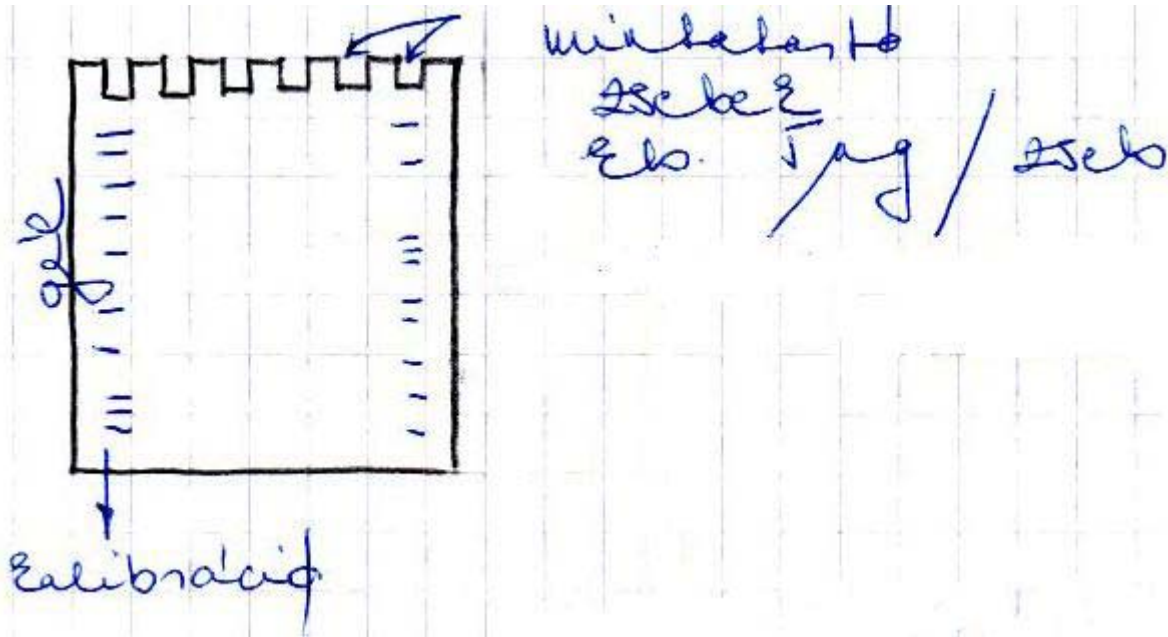 mintatartó
zsebek
kb. 5 µg / zseb
gél
kalibráció